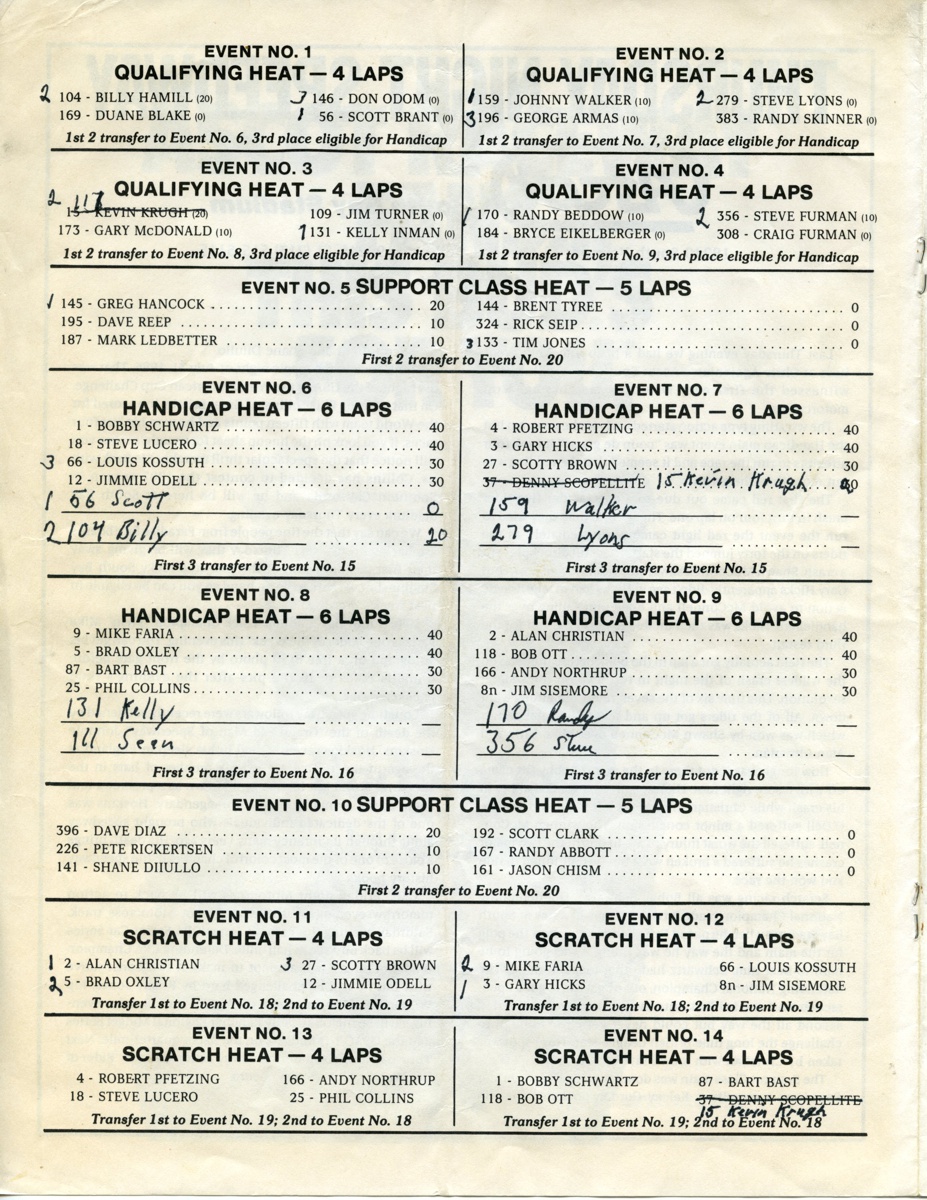 EVENT NO. 1
QUALIFYING HEAT — 4 LAPS
2 104 - BILLY HAMILL (20) 3 146 - DON ODOM (0)
169 - DUANE BLAKE (0) 1 56 - SCOTT BRANT (0)
1st 2 transfer to Event No. 6, 3rd place eligible for Handicap
EVENT NO. 2
QUALIFYING HEAT — 4 LAPS
1 159 - JOHNNY WALKER (10) 2 279 - STEVE LYONS (0)
3 196 - GEORGE ARMAS (10) 383 - RANDY SKINNER (0)
1st 2 transfer to Event No. 7, 3rd place eligible for Handicap
EVENT NO. 3
QUALIFYING HEAT — 4 LAPS
2 117
15 - KEVIN KRUGH (20) 109 - JIM TURNER (0)
173 - GARY McDONALD (10) 1 131 - KELLY INMAN (0)
1st 2 transfer to Event No. 8, 3rd place eligible for Handicap
EVENT NO. 4
QUALIFYING HEAT — 4 LAPS
1 170 - RANDY BEDDOW (10) 2 356 - STEVE FURMAN (10)
184 - BRYCE EIKELBERGER (0) 308 - CRAIG FURMAN (0)
1st 2 transfer to Event No. 9, 3rd place eligible for Handicap
EVENT NO. 5 SUPPORT CLASS HEAT — 5 LAPS
1 145 - GREG HANCOCK 20 144 - BRENT TYREE 0
195 - DAVE REEP 10 324 - RICK SEIP 0
187 - MARK LEDBETTER 10 3 133 - TIM JONES 0
First 2 transfer to Event No. 20
EVENT NO. 6
HANDICAP HEAT — 6 LAPS
1 - BOBBY SCHWARTZ 40
18 - STEVE LUCERO 40
3 66 - LOUIS KOSSUTH 30
12 - JIMMIE ODELL 30
1 56 Scott 0
2 104 Billy 20
First 3 transfer to Event No. 15
EVENT NO. 7
HANDICAP HEAT — 6 LAPS
4 - ROBERT PFETZING 40
3 - GARY HICKS 40
27 - SCOTTY BROWN 30
37 - DENNY SCOPELLITE 15 Kevin Krugh
159 Walker
279 Lyons
First 3 transfer to Event No. 15
EVENT NO. 8
HANDICAP HEAT — 6 LAPS
9 - MIKE FARIA 40
5 - BRAD OXLEY 40
87 - BART BAST 30
25 - PHIL COLLINS 30
131 Kelly
111 Sean
First 3 transfer to Event No. 16
EVENT NO. 9
HANDICAP HEAT — 6 LAPS
2 - ALAN CHRISTIAN 40
118 - BOB OTT 40
166 - ANDY NORTHRUP 30
8n - JIM SISEMORE 30
170 Randy
356 Steve
First 3 transfer to Event No. 16
EVENT NO. 10 SUPPORT CLASS HEAT — 5 LAPS
396 - DAVE DIAZ 20 192 - SCOTT CLARK 0
226 - PETE RICKERTSEN 10 167 - RANDY ABBOTT 0
141 - SHANE DIIULLO 10 161 - JASON CHISM 0
First 2 transfer to Event No. 20
EVENT NO. 11
SCRATCH HEAT — 4 LAPS
1 2 - ALAN CHRISTIAN 3 27 - SCOTTY BROWN
2 5 - BRAD OXLEY 12 - JIMMIE ODELL
Transfer 1st to Event No. 18; 2nd to Event No. 19
EVENT NO. 12
SCRATCH HEAT — 4 LAPS
2 9 - MIKE FARIA 66 - LOUIS KOSSUTH
1 3 - GARY HICKS 8n - JIM SISEMORE
Transfer 1st to Event No. 18; 2nd to Event No. 19
EVENT NO. 13
SCRATCH HEAT — 4 LAPS
4 - ROBERT PFETZING 166 - ANDY NORTHRUP
18 - STEVE LUCERO 25 - PHIL COLLINS
Transfer 1st to Event No. 19; 2nd to Event No. 18
EVENT NO. 14
SCRATCH HEAT — 4 LAPS
1 - BOBBY SCHWARTZ 87 - BART BAST
118 - BOB OTT 37 - DENNY SCOPELLITE
15 Kevin Krugh
Transfer 1st to Event No. 19; 2nd to Event No. 18